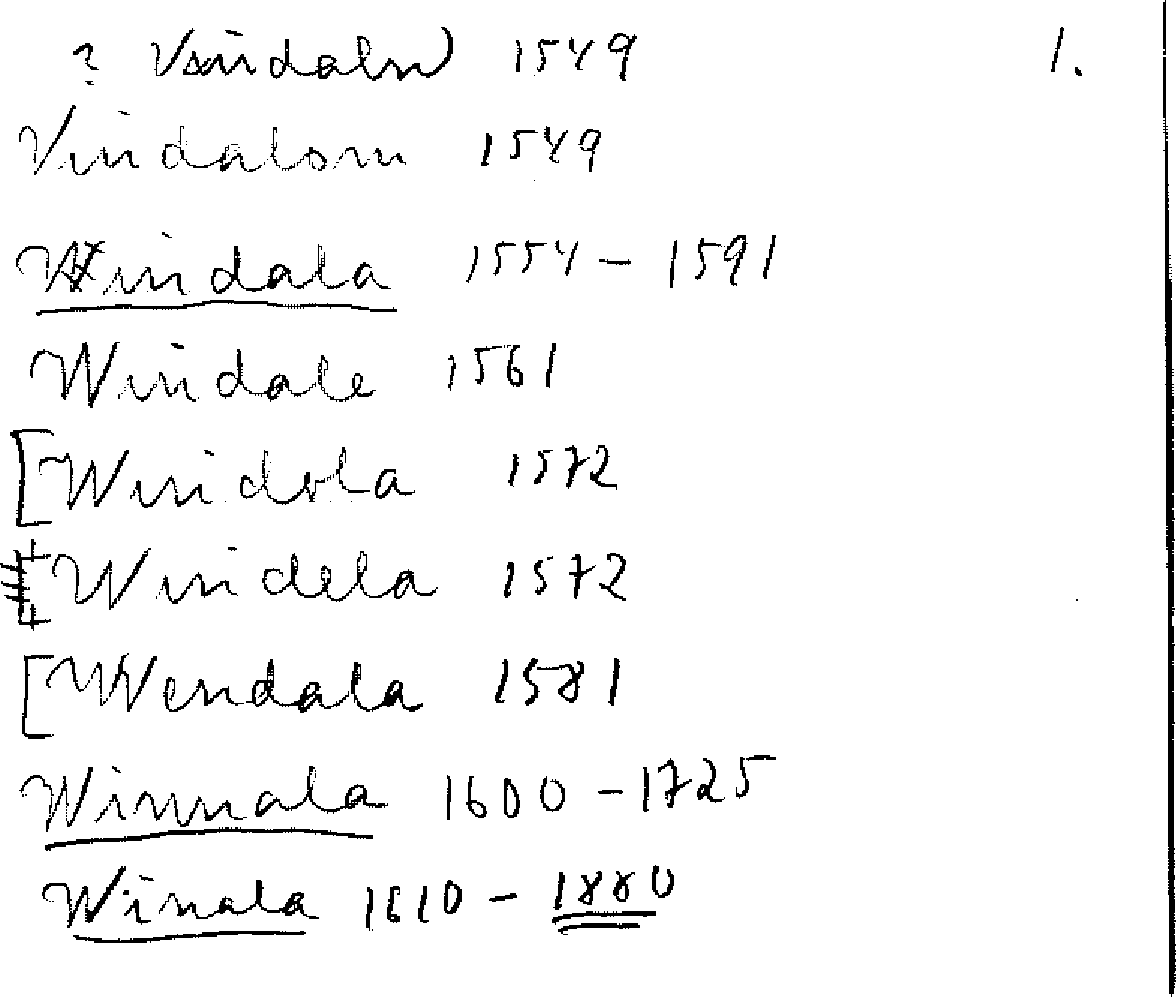 ? Vindalm 1549 1.
Vindalom 1549
Windala 1554 - 1591
Windale 1561
[Windola 1572
[Windela 1572
[Wendala 1581
Winnala 1600 - 1725
Winala 1610 - 1880